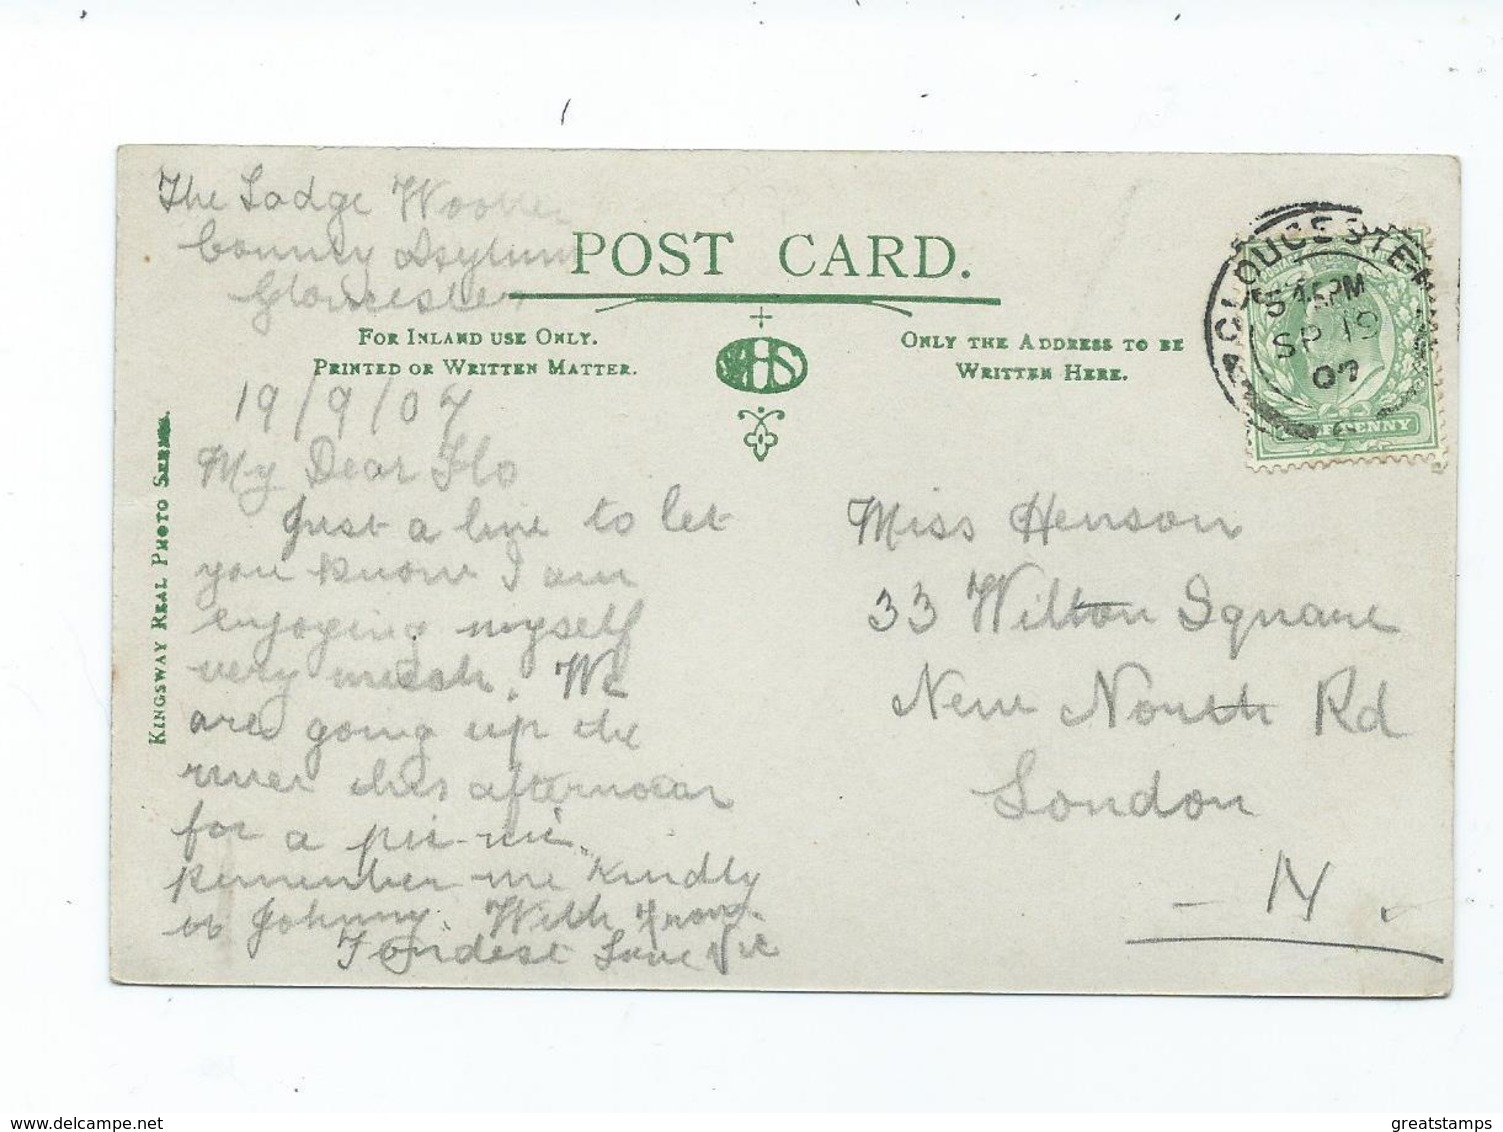 The Lodge
County Asylum
Gloucester
POST CARD.
FOR INLAND USE ONLY.
PRINTED OR WRITTEN MATTER.
ONLY THE ADDRESS TO BE
WRITTEN HERE.
GLOUCESTER
5 45PM
SP 19
07
HALFPENNY
KINGSWAY REAL PHOTO SERIES.
19/9/07
My Dear Flo
Just a line to let
you know I am
enjoying myself
very much. We
are going up the
river this afternoon
for a pic-nic.
Remember me kindly
to Johnny. With
Fondest Love Vic
Miss Henson
33 Wilton Square
New North Rd
London
- N.
delcampe.net
greatstamps